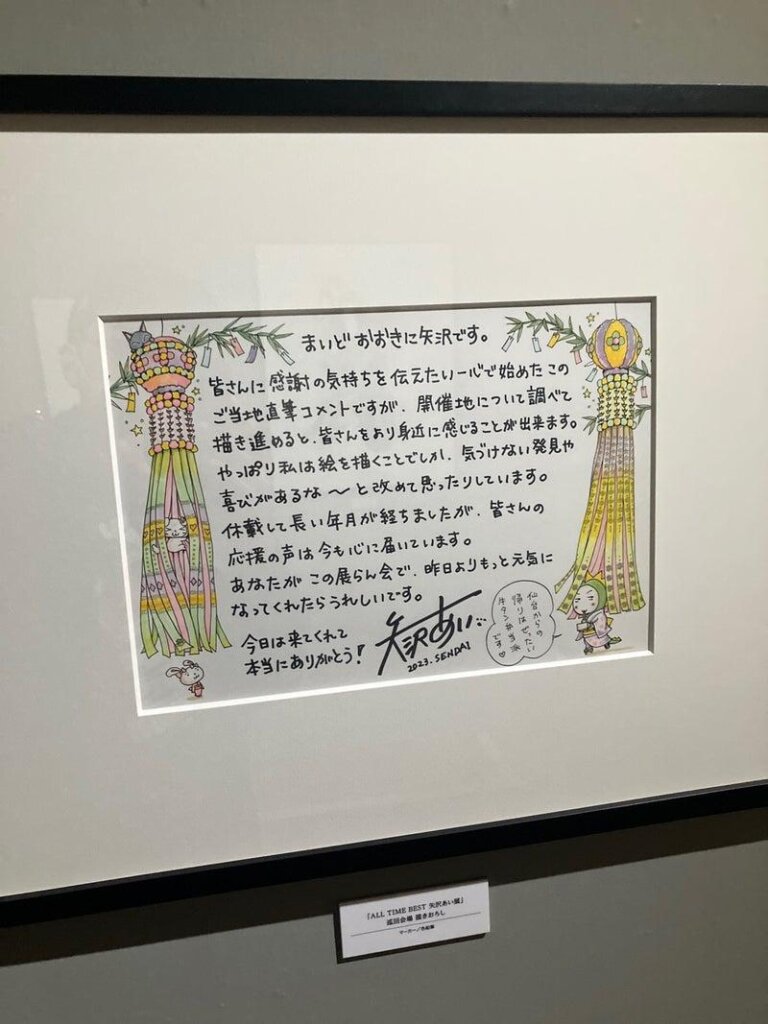 まいどおおきに矢沢です。
皆さんに感謝の気持ちを伝えたい一心で始めたこの
ご当地直筆コメントですが、開催地について調べて
描き進めると、皆さんをより身近に感じることが出来ます。
やっぱり私は絵を描くことでしか、気づけない発見や
喜びがあるな〜と改めて思ったりしています。
休載して長い年月が経ちましたが、皆さんの
応援の声は今も心に届いています。
あなたが この展らん会で、昨日よりもっと元気に
なってくれたらうれしいです。
今日は来てくれて
本当にありがとう!
矢沢あい
2023. SENDAI
仙台からの
帰りはぜったい
牛タン弁当派
です♡
「ALL TIME BEST 矢沢あい展」
巡回会場 描きおろし
マーカー/色鉛筆